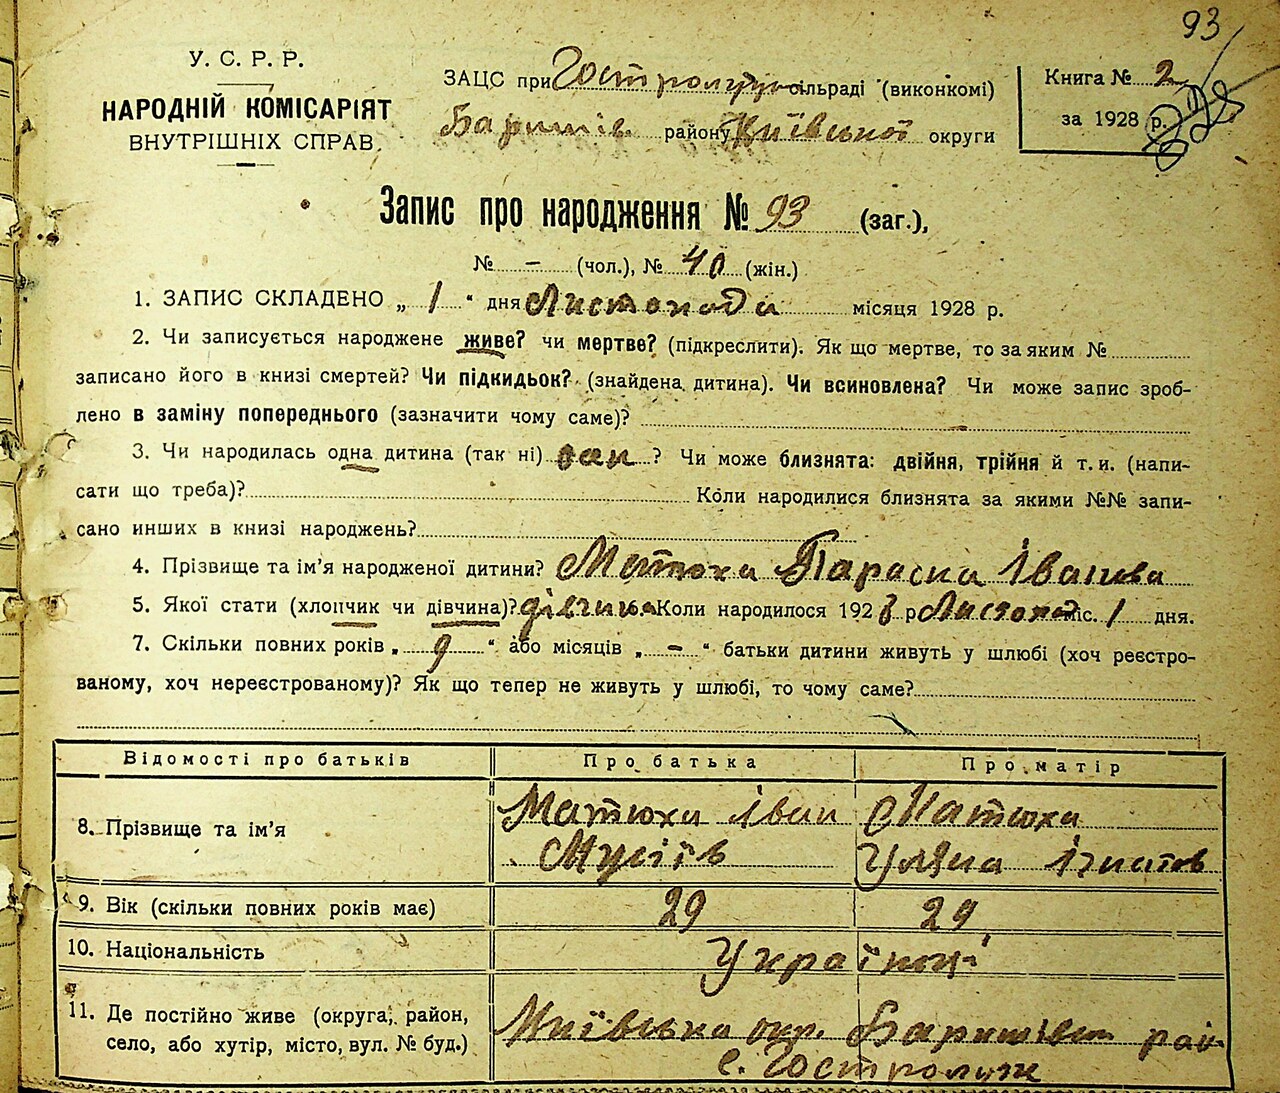 93
У. С. Р. Р.
НАРОДНІЙ КОМІСАРІЯТ
ВНУТРІШНІХ СПРАВ.
ЗАЦС при Гостролуцк сільраді (виконкомі)
Баришів. району Київської округи
Книга № 2
за 1928 р.
Запис про народження № 93 (заг.),
№ - (чол.), № 40 (жін.)
1. ЗАПИС СКЛАДЕНО „ 1 " дня Листопада місяця 1928 р.
2. Чи записується народжене живе? чи мертве? (підкреслити). Як що мертве, то за яким №
записано його в книзі смертей? Чи підкидьок? (знайдена дитина). Чи всиновлена? Чи може запис зроб-
лено в заміну попереднього (зазначити чому саме)?
3. Чи народилась одна дитина (так ні) так ? Чи може близнята: двійня, трійня й т. и. (напи-
сати що треба)? Коли народилися близнята за якими №№ запи-
сано инших в книзі народжень?
4. Прізвище та ім'я народженої дитини? Матюха Параска Іванова
5. Якої стати (хлопчик чи дівчина)? дівчина Коли народилося 1928 р Листопад міс. 1 дня.
7. Скільки повних років „ 9 " або місяців „ - " батьки дитини живуть у шлюбі (хоч реєстро-
ваному, хоч нереєстрованому)? Як що тепер не живуть у шлюбі, то чому саме?
Відомості про батьків Про батька Про матір
8. Прізвище та ім'я Матюха Іван Матюха
Мусіїв Уляна Ігнатов
9. Вік (скільки повних років має) 29 29
10. Національність Українці
11. Де постійно живе (округа, район, Київська окр. Баришівськ рай
село, або хутір, місто, вул. № буд.) с. Гостролуч